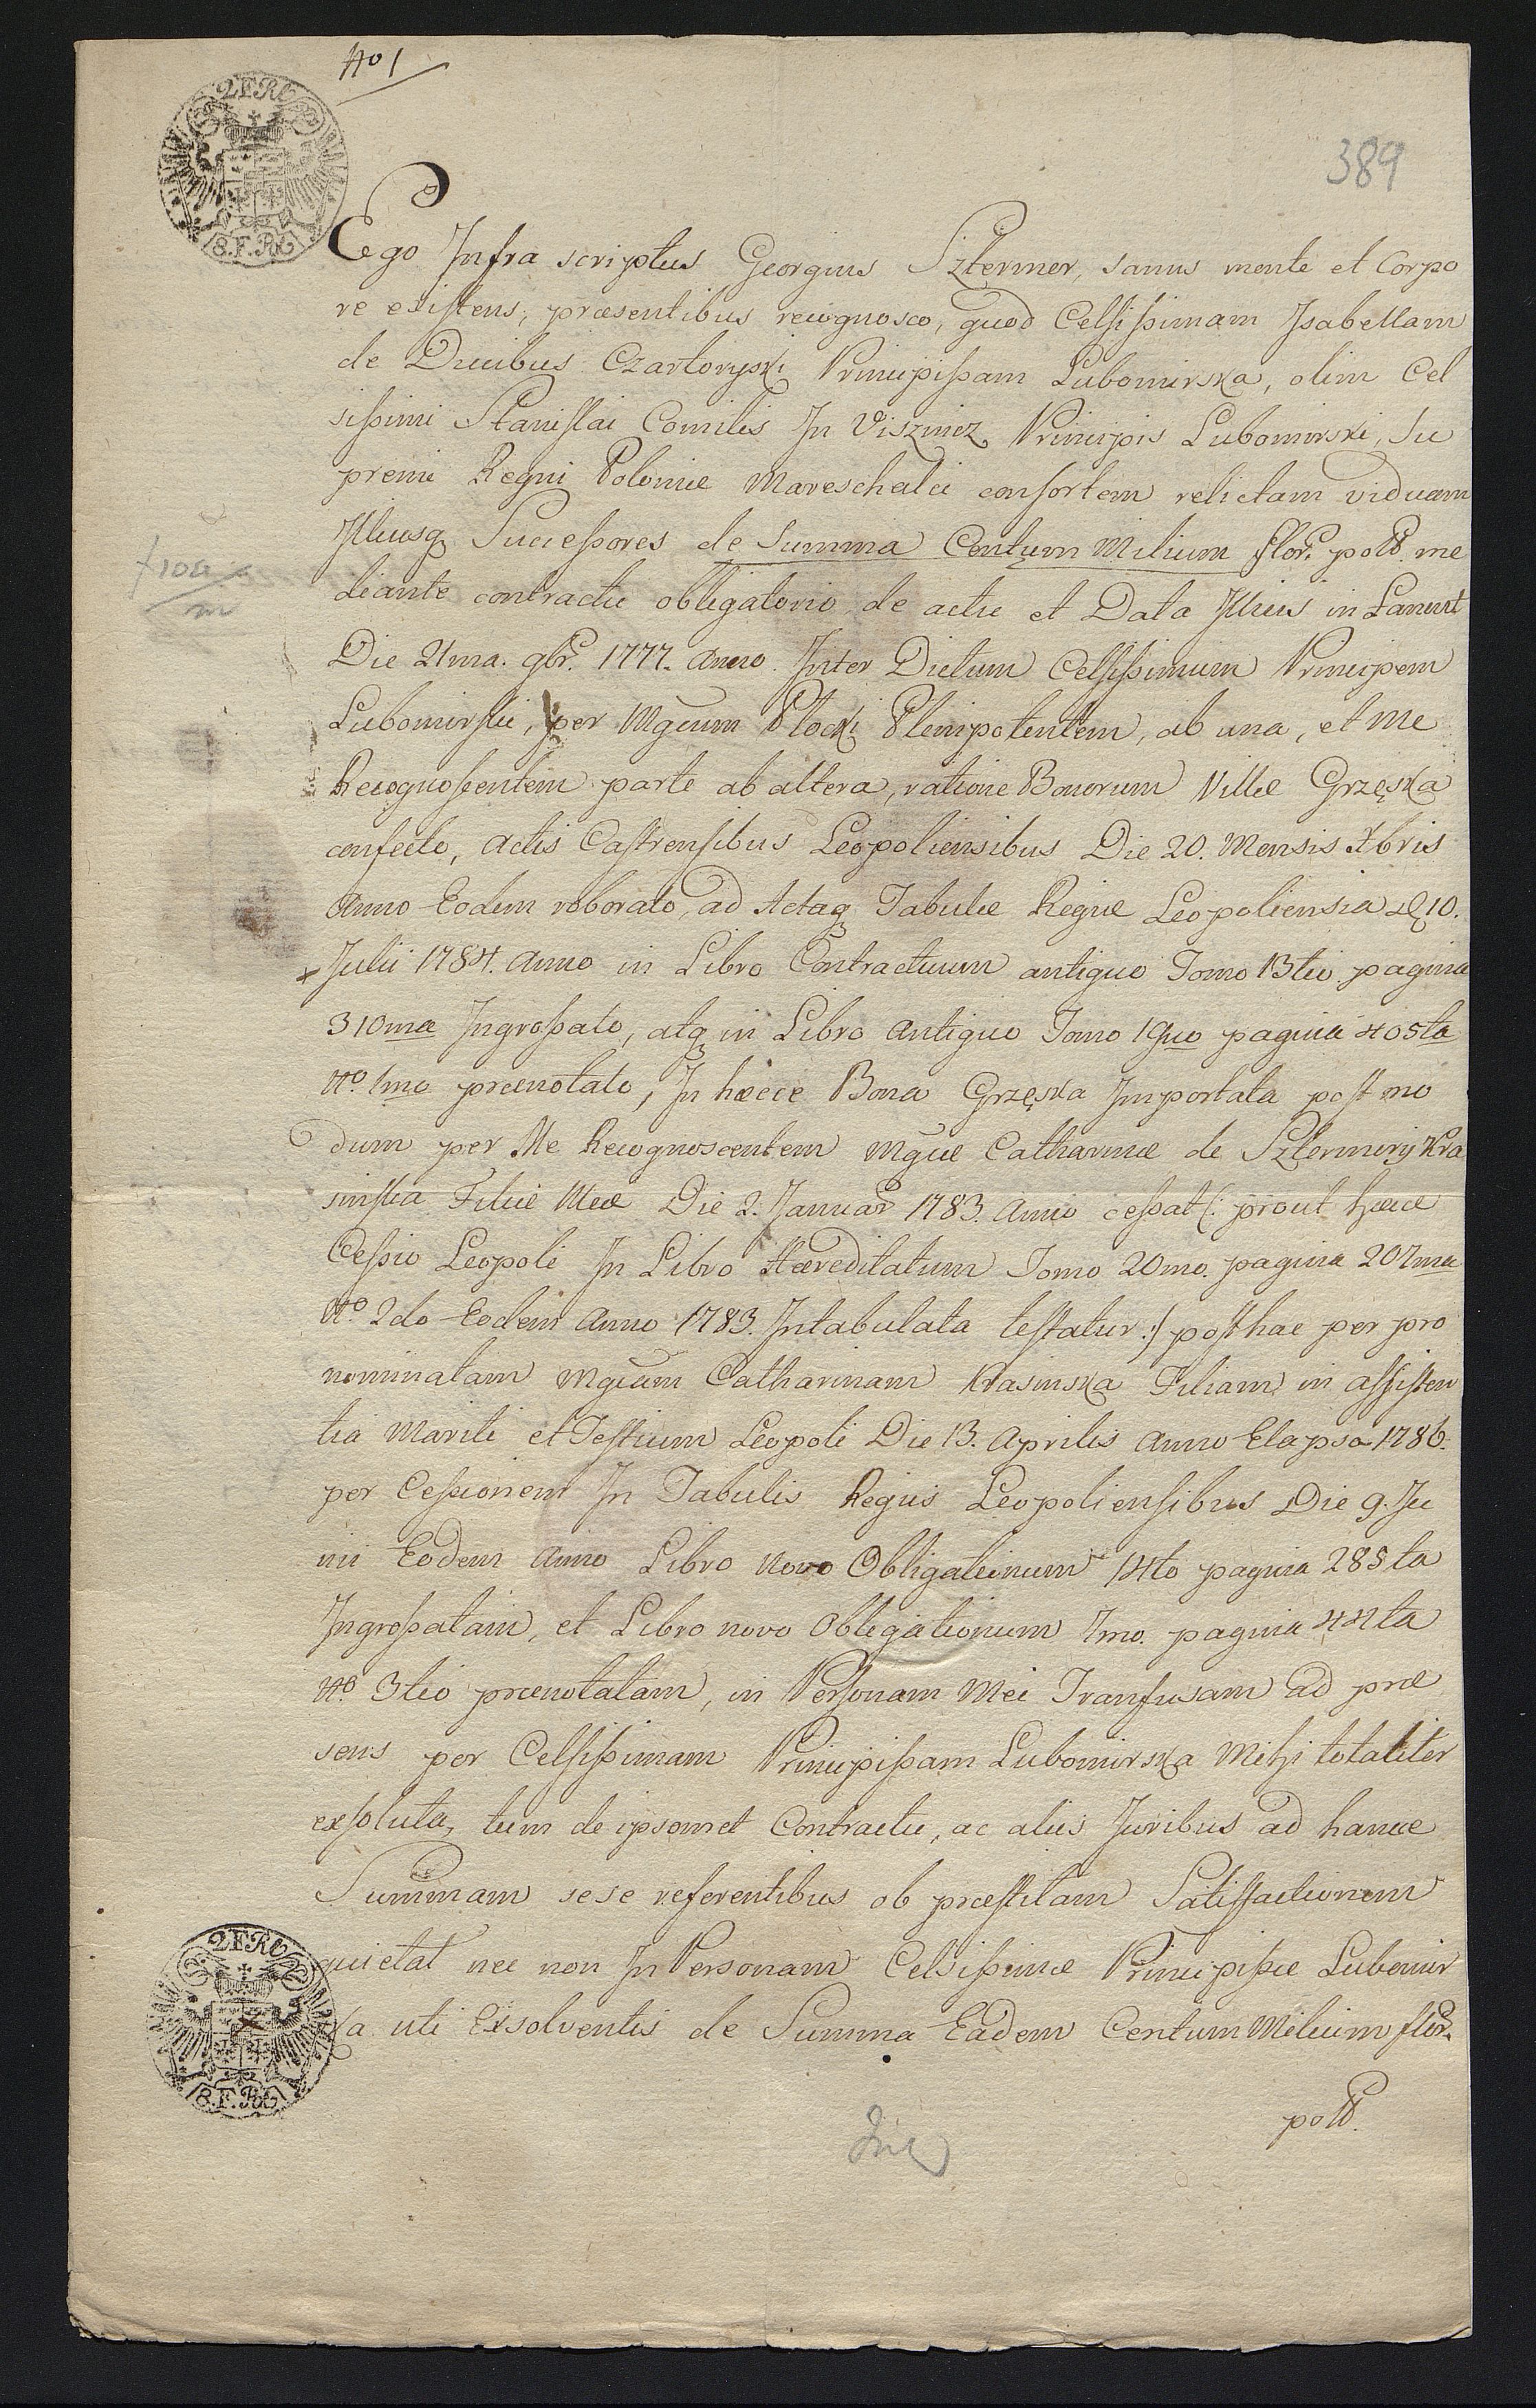 No 1
2 F. R.
8. F. R.
389
Ego Infra scriptus Georgius Sztermer, sanus mente et Corpo
re existens, præsentibus recognosco, quod Celsissimam Isabellam
de Ducibus Czartoryski Principissam Lubomirska, olim Cel
sissimi Stanislai Comitis In Visznicz Principis Lubomirski, Su
premi Regni Poloniæ Mareschalci consortem relictam viduam
Illiusq Successores de Summa Centum Milium flor. poll. me
diante contractu obligatorio de actu et Data Illius in Lancut
Die 21ma. 9br. 1777. Anno. Inter Dictum Celsissimum Principem
Lubomirski, per Mgcum Plocki Plenipotentem, ab una, et Me
Recognoscentem parte ab altera, ratione Bonorum Villæ Grzęska
confecto, Actis Castrensibus Leopoliensibus Die 20. Mensis Xbris
Anno Eodem roborato, ad Actaq Tabulæ Regiæ Leopoliensia D 10.
Julii 1784. Anno in Libro Contractuum antiquo Tomo 13tio pagina
310ma Ingrossato, atq in Libro Antiquo Tomo 19no pagina 405ta
No. 1mo prænotato, In hæcce Bona Grzęska Importata post mo
dum per Me Recognoscentem Mgcæ Catharinæ de Sztermery Kra
sinska Filiæ Meæ Die 2. Januar 1783. Anno cessat (: prout hæcce
Cessio Leopoli In Libro Hæreditatum Tomo 20mo. pagina 207ma
No. 2do Eodem Anno 1783. Intabulata testatur :) posthac per pro
nominatam Mgcam Catharinam Krasinska Filiam in assisten
tia Mariti et Testium Leopoli Die 13. Aprilis Anno Elapso 1786.
per Cessionem In Tabulis Regiis Leopoliensibus Die 9. Ju
nii Eodem Anno Libro Novo Obligationum 14to pagina 285ta
Ingrossatam, et Libro novo Obligationum 7mo. pagina 44ta
No. 3tio prænotatam, in Personam Mei Transfusam ad præ
sens per Celsissimam Principissam Lubomirska Mihi totaliter
exsoluta, tum de ipsomet Contractu, ac aliis Juribus ad hancce
Summam sese referentibus ob præstitam Satisfactionem
quietat nec non In Personam Celsissimæ Principissæ Lubomir
ska uti Exsolventis de Summa Eadem Centum Milium flor.
poll.
2 F. R.
8. F. R.